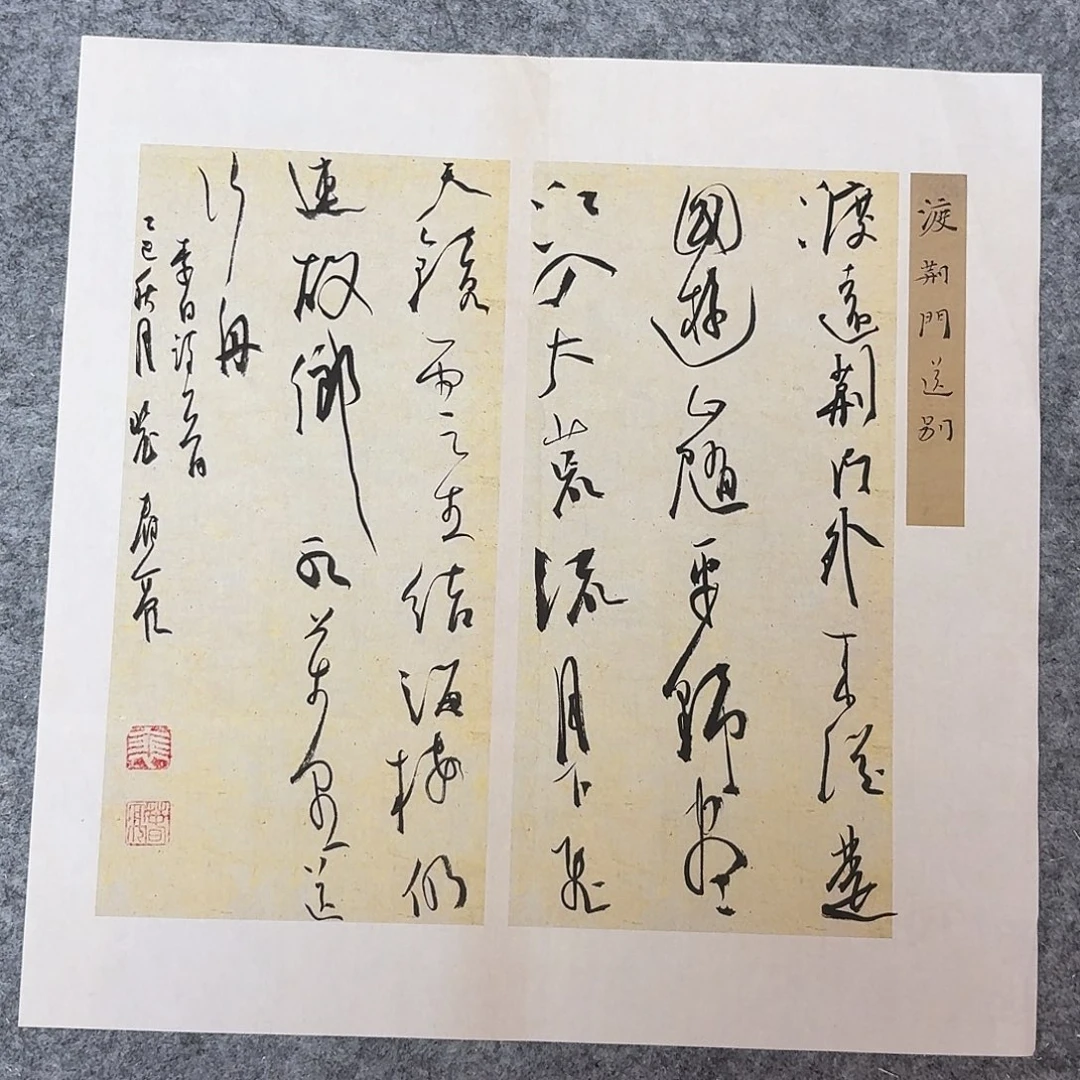 渡荊門送別
渡遠荊門外來從楚
國遊山隨平野盡
江入大荒流月下飛
天鏡雲生結海樓仍
連故鄉水萬里送
行舟
李白詩一首
乙巳秋月